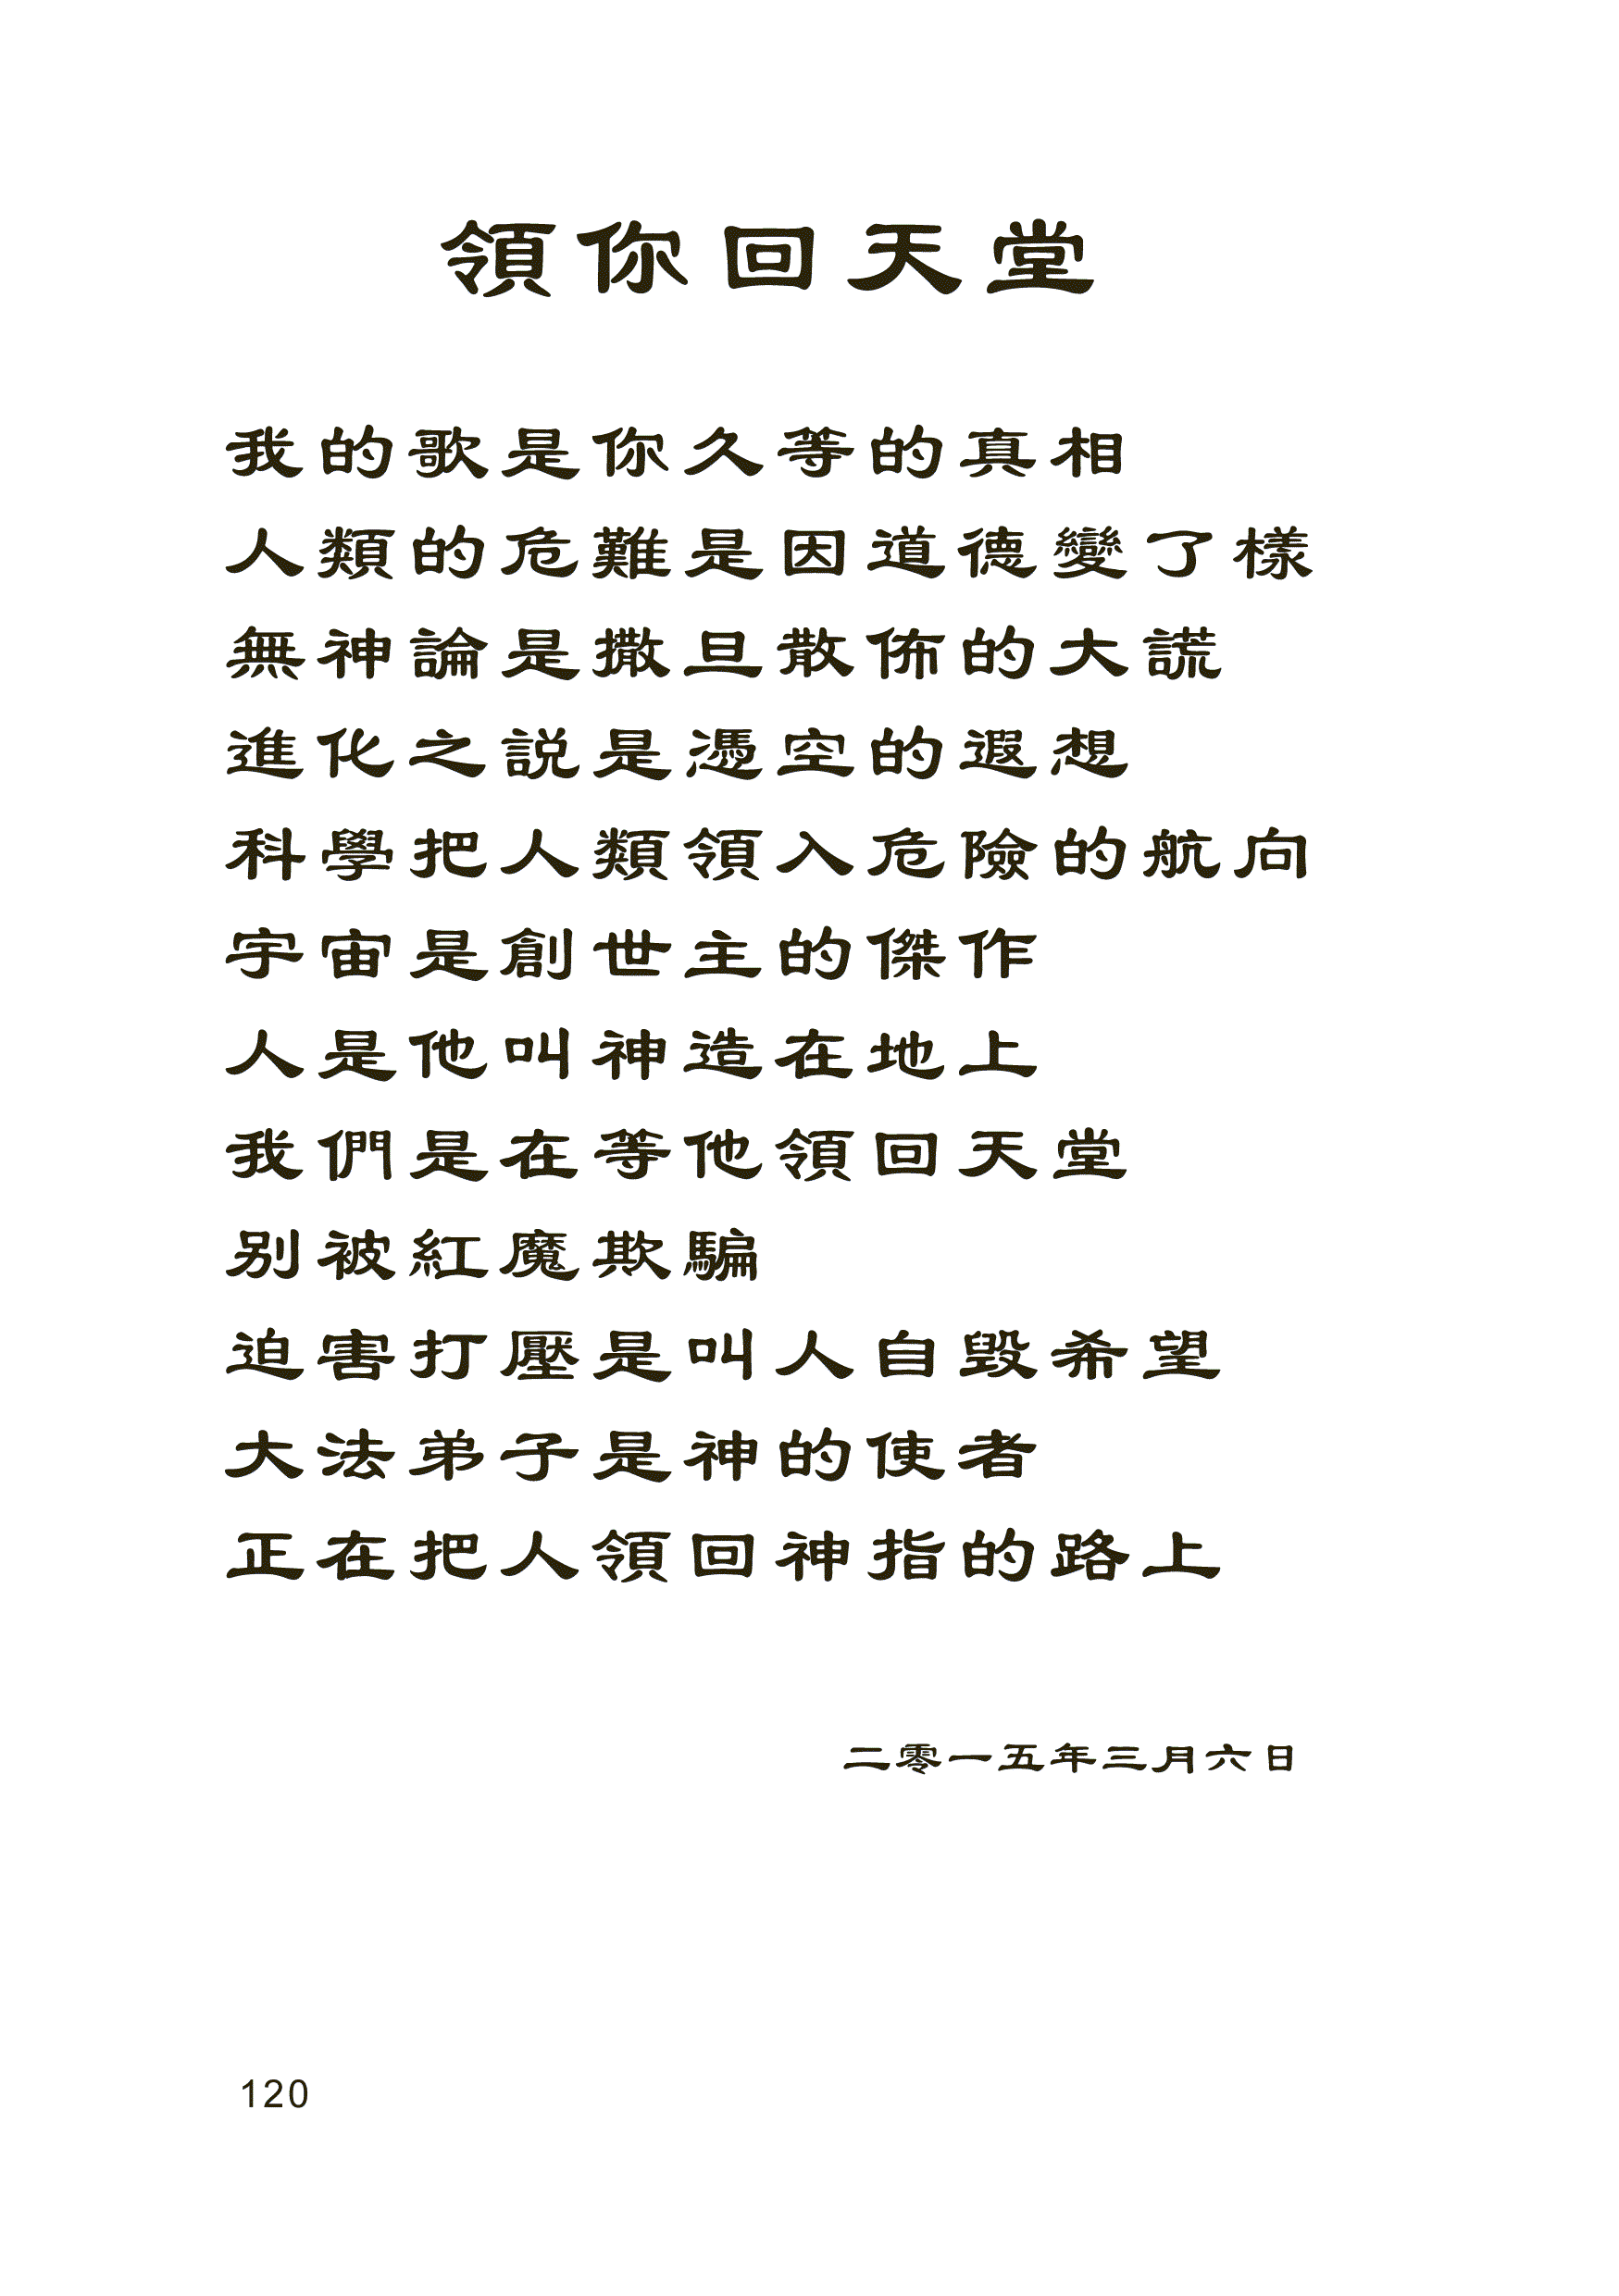 領你回天堂
我的歌是你久等的真相
人類的危難是因道德變了樣
無神論是撒旦散佈的大謊
進化之説是憑空的遐想
科學把人類領入危險的航向
宇宙是創世主的傑作
人是他叫神造在地上
我們是在等他領回天堂
别被紅魔欺騙
迫害打壓是叫人自毀希望
大法弟子是神的使者
正在把人領回神指的路上
二零一五年三月六日
120